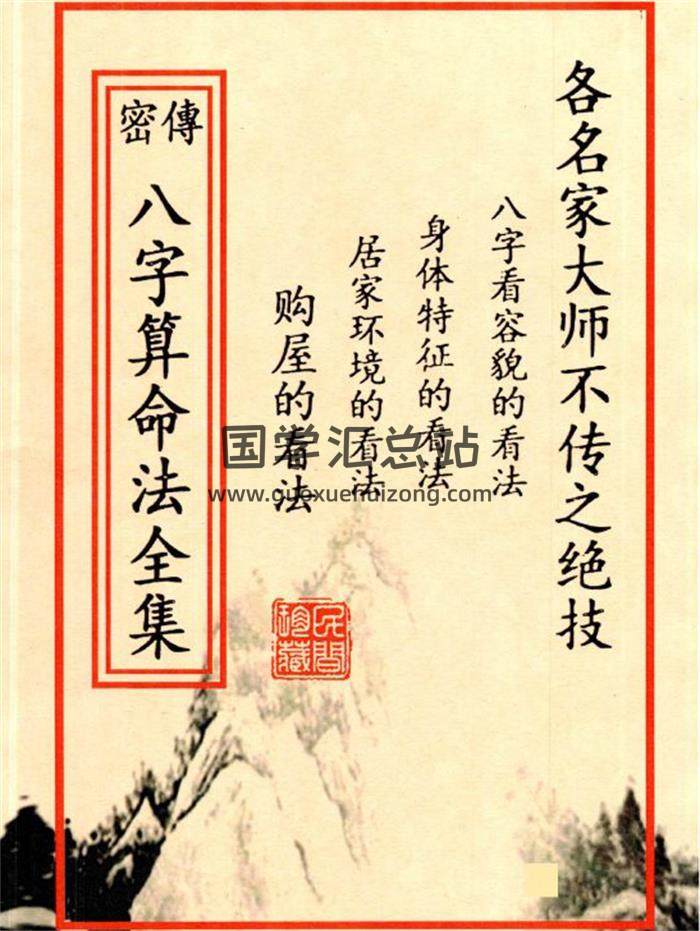 各名家大师不传之绝技
八字看容貌的看法
身体特征的看法
居家环境的看法
购屋的看法
密傳
八字算命法全集
民間珍藏
国学汇总站
www.guoxuehuizong.com